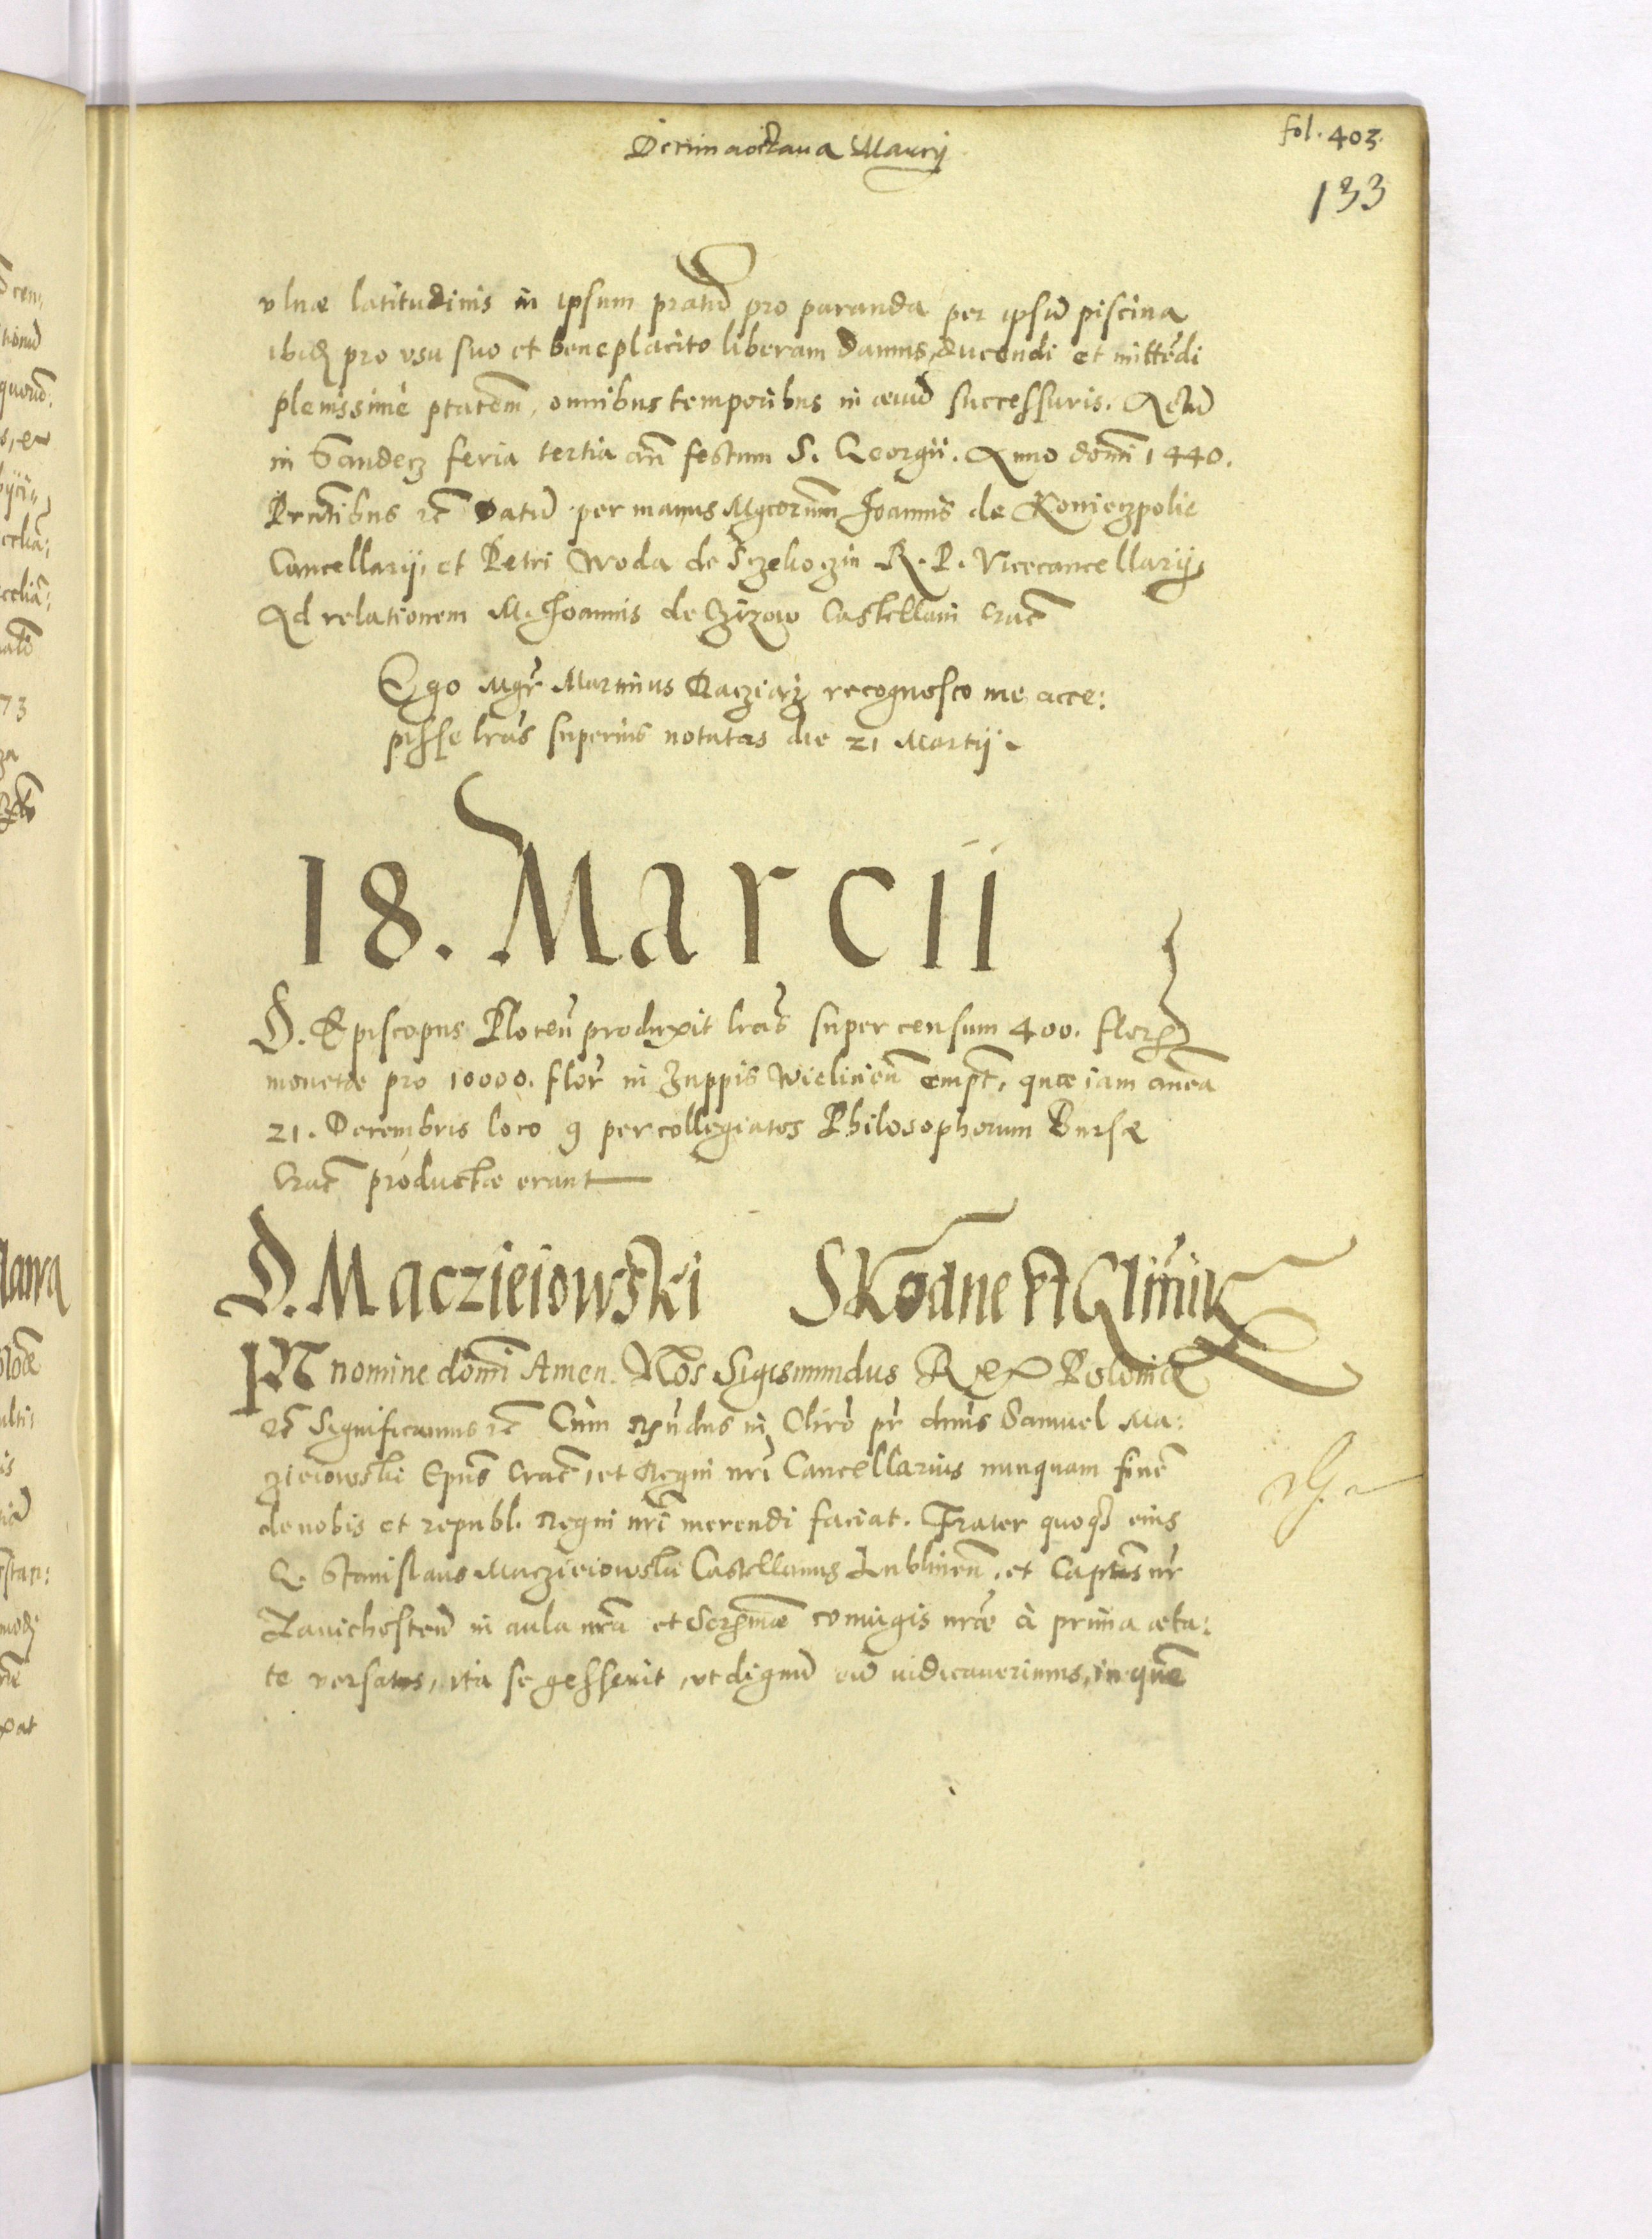 Decimaoctava Marcij
fol. 403.
133
vlnæ latitudinis in ipsum pratū pro paranda per ipsū piscina
ibid pro vsu suo et beneplacito liberam damus, ducendi et mittēdi
plenissimè ptatem, omnibus temporibus in æuū successuris. Actū
in Sandecz feria tertia an̄ festum S. Georgii. Anno domī 1440.
Prntibus etc Datū per manus Mgcorum Joannis de Konieczpolie
Cancellarij, et Petri Woda de Sczekoczin R. P. Vicecancellarij,
Ad relationem M. Joannis de Czizow Castellani Crac̄
Ego Mgr Martinus Racziaz recognosco me acce:
pisse lras superius notatas die 21 Martij.
18. Marcii
D. Episcopus Plocen̄ produxit lras super censum 400. flor
monetæ pro 10000. flor in Zuppis Wielicien̄ empt, quæ iam antea
21. Decembris loco 9 per collegiatos Philosophorum Bursæ
Crac̄ productæ erant
D. Maczieiowski
IN nomine domī Amen. Nos Sigismundus Rex Poloniæ
etc Significamus etc Cùm Rndus in Chro pr dnus Samuel Ma:
zieiowski Epus Crac̄, et Regni nri Cancellarius nunquam finē
de nobis et republ. Regni nri merendi faciat. Frater quoq eius
G. Stanislaus Maczieiowski Castellanus Lublinen̄, et Captus nr
Zavichosten̄ in aula nra et Sermæ coniugis nræ à prima æta:
te versatus, ita se gesserit, vt dignū eū iudicauerimus, in quē